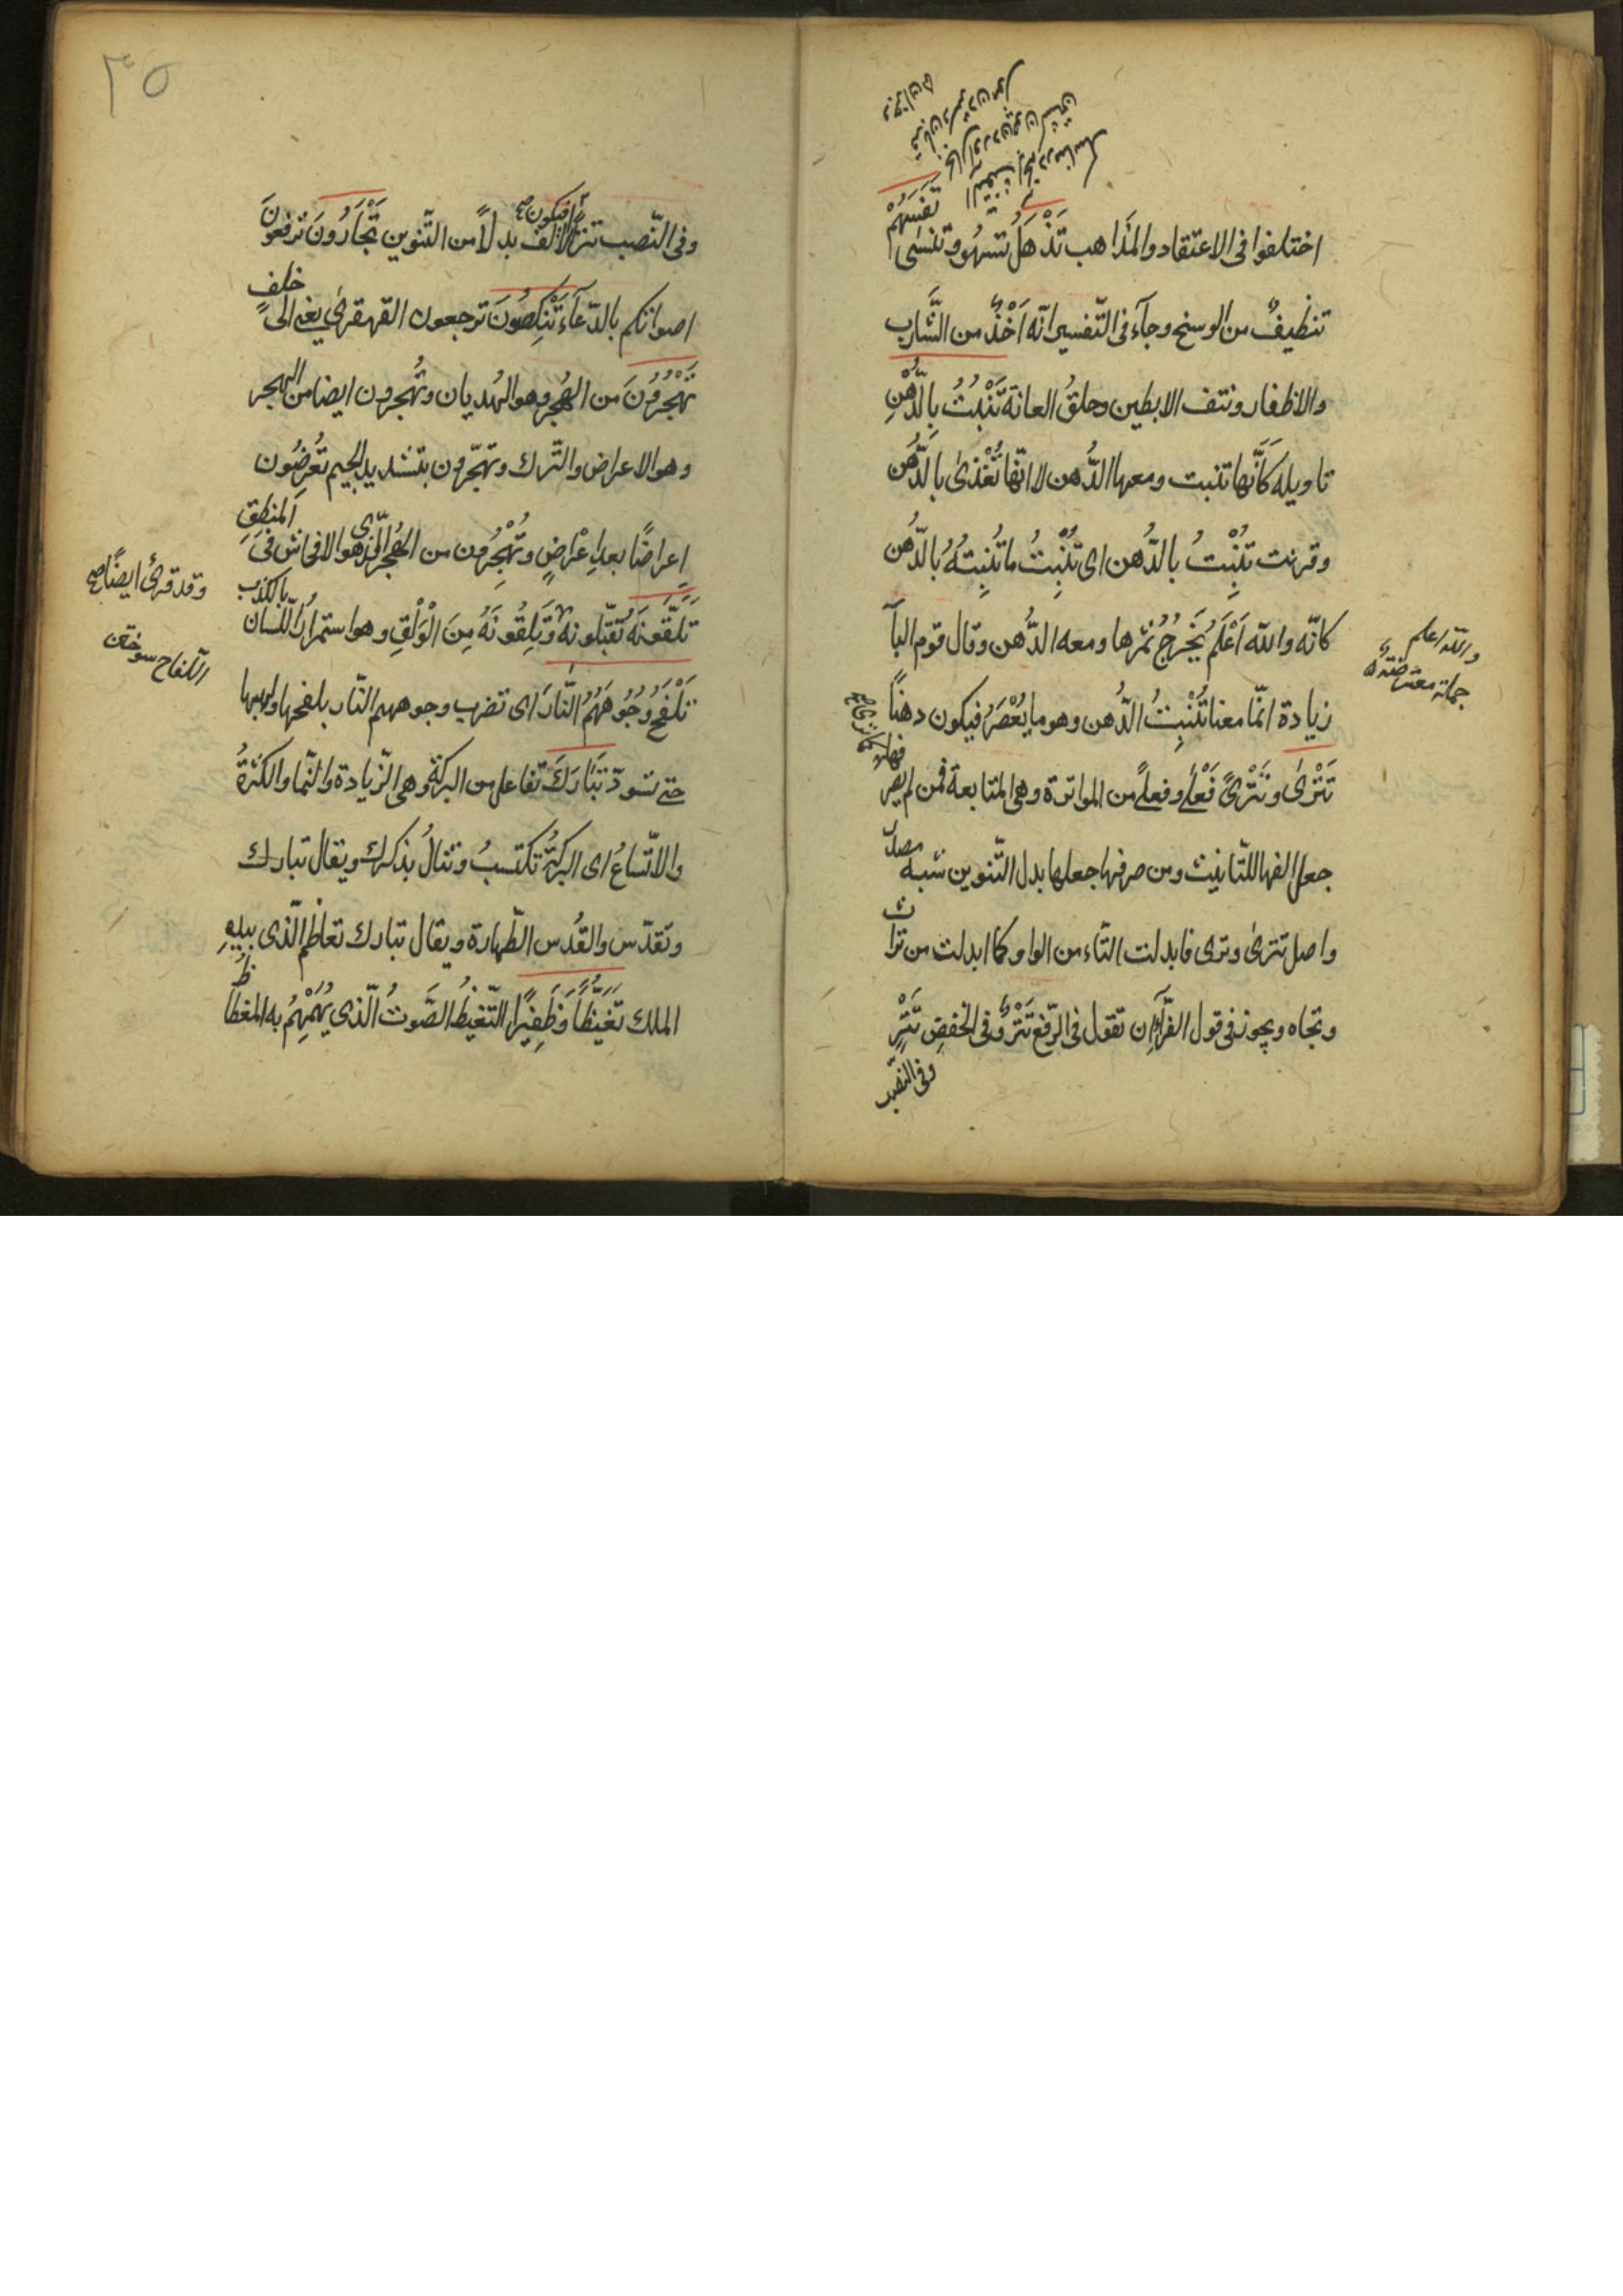 اختلفوا فى الاعتقاد والمذاهب تَذْهَلُ تسهُو وتنسٰى تَفَثَهُمْ
تنظيفٌ من الوسخ وجآء فى التّفسير انّه اَخْذٌ من الشَّارب
والاظفار ونتف الابطين وحلقُ العانة تَنْبُتُ بِالدُّهْنِ
تاويله كَاَنَّها تنبت ومعها الدُّهن لا انّها تُغْذٰى بالدُّهن
وقرئت تُنْبِتُ بالدُّهن اى تُنْبِتُ ما تُنْبِتُهُ بالدُّهن
كانّه واللّه اَعْلَمُ يَخْرجُ ثمرها ومعه الدُّهن وقال قوم البآ
واللّه اعلم
جملة معترضة
زيادة انّما معنا تُنْبِتُ الدُّهن وهو ما يُعْصَرُ فيكون دهناً
تَتْرٰى وتَتْرًى فَعْلٰى وفعلًى من المواترة وهى المتابعة فمن لم يصرفها
جعل الفها للتّانيث ومن صرفها جعلها بدل التّنوين شبه مصدر
واصل تترىٰ وترى فابدلت التّاء من الواو كما ابدلت من تراث
وتجاه ويجوز فى قول الفرّآء ان تقول فى الرّفع تَتْرٌ وفى الخفضِ تَتْرٍ
وفى النّصب
٣٥
وفى النّصب تترًا فيكون الالف بدلاً من التّنوين تَجْأَرُونَ ترفعونَ
اصواتكم بالدّعآء تَنْكِصُونَ ترجعون القهقرى يعنى الى خلف
تَهْجُرُونَ من الهُجر وهو الهذيان وتَهجرون ايضا من الهجر
وهو الاعراض والتّرك وتهجّرون بتشديد الجيم تُعرضُون
اِعراضًا بعد اِعْراضٍ وتُهْجِرُون من الهُجر الّذى هو الافحاش فى المنطِق
وقد قرئ ايضًا
تَلَقَّوْنَهُ تَقبّلونه وَتَلِقُونَهُ مِنَ الْوَلْقِ وهو استمرارُ اللّسان بالكذب
تَلْفَحُ وُجُوهَهُمُ النَّارَ اى تضرب وجوههم النّار بلفحها ولهبها
اللفاح سوختن
حتى تسودّ تَبَارَكَ تفاعل من البركة وهى الزّيادة والنّما والكثرةُ
والاتّساعُ اى البركةُ تكتسبُ وتنالُ بذكرك ويقال تبارك
وتقدّس والقُدس الطّهارة ويقال تبارك تعاظم الّذى بيدِهِ
الملك تَغَيُّظاً وَزَفِيرًا التّغيظُ الصَّوتُ الّذى يُهَمْهِمُ به المغتاظ